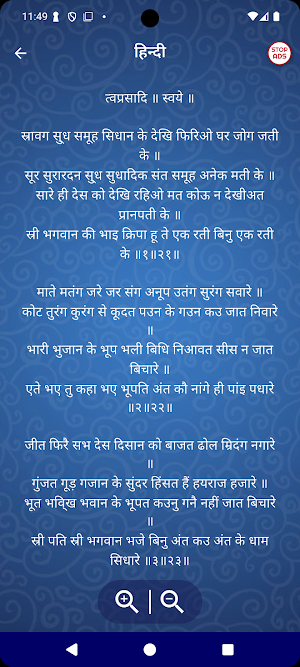 11:49
हिन्दी
STOP ADS
त्वप्रसादि ॥ स्वये ॥
स्रावग सु्ध समूह सिधान के देखि फिरिओ घर जोग जती
के ॥
सूर सुरारदन सु्ध सुधादिक संत समूह अनेक मती के ॥
सारे ही देस को देखि रहिओ मत कोऊ न देखीअत
प्रानपती के ॥
स्री भगवान की भाइ क्रिपा हू ते एक रती बिनु एक रती
के ॥१॥२१॥
माते मतंग जरे जर संग अनूप उतंग सुरंग सवारे ॥
कोट तुरंग कुरंग से कूदत पउन के गउन कउ जात निवारे
॥
भारी भुजान के भूप भली बिधि निआवत सीस न जात
बिचारे ॥
एते भए तु कहा भए भूपति अंत कौ नांगे ही पांइ पधारे
॥२॥२२॥
जीत फिरै सभ देस दिसान को बाजत ढोल म्रिदंग नगारे
॥
गुंजत गूड़ गजान के सुंदर हिंसत हैं हयराज हजारे ॥
भूत भवि्ख भवान के भूपत कउनु गनै नहीं जात बिचारे
॥
स्री पति स्री भगवान भजे बिनु अंत कउ अंत के धाम
सिधारे ॥३॥२३॥